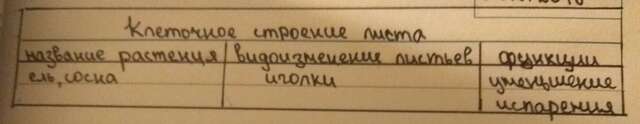 Клеточное строение листа
название растения видоизменение листьев функции
ель, сосна иголки уменьшение
испарения